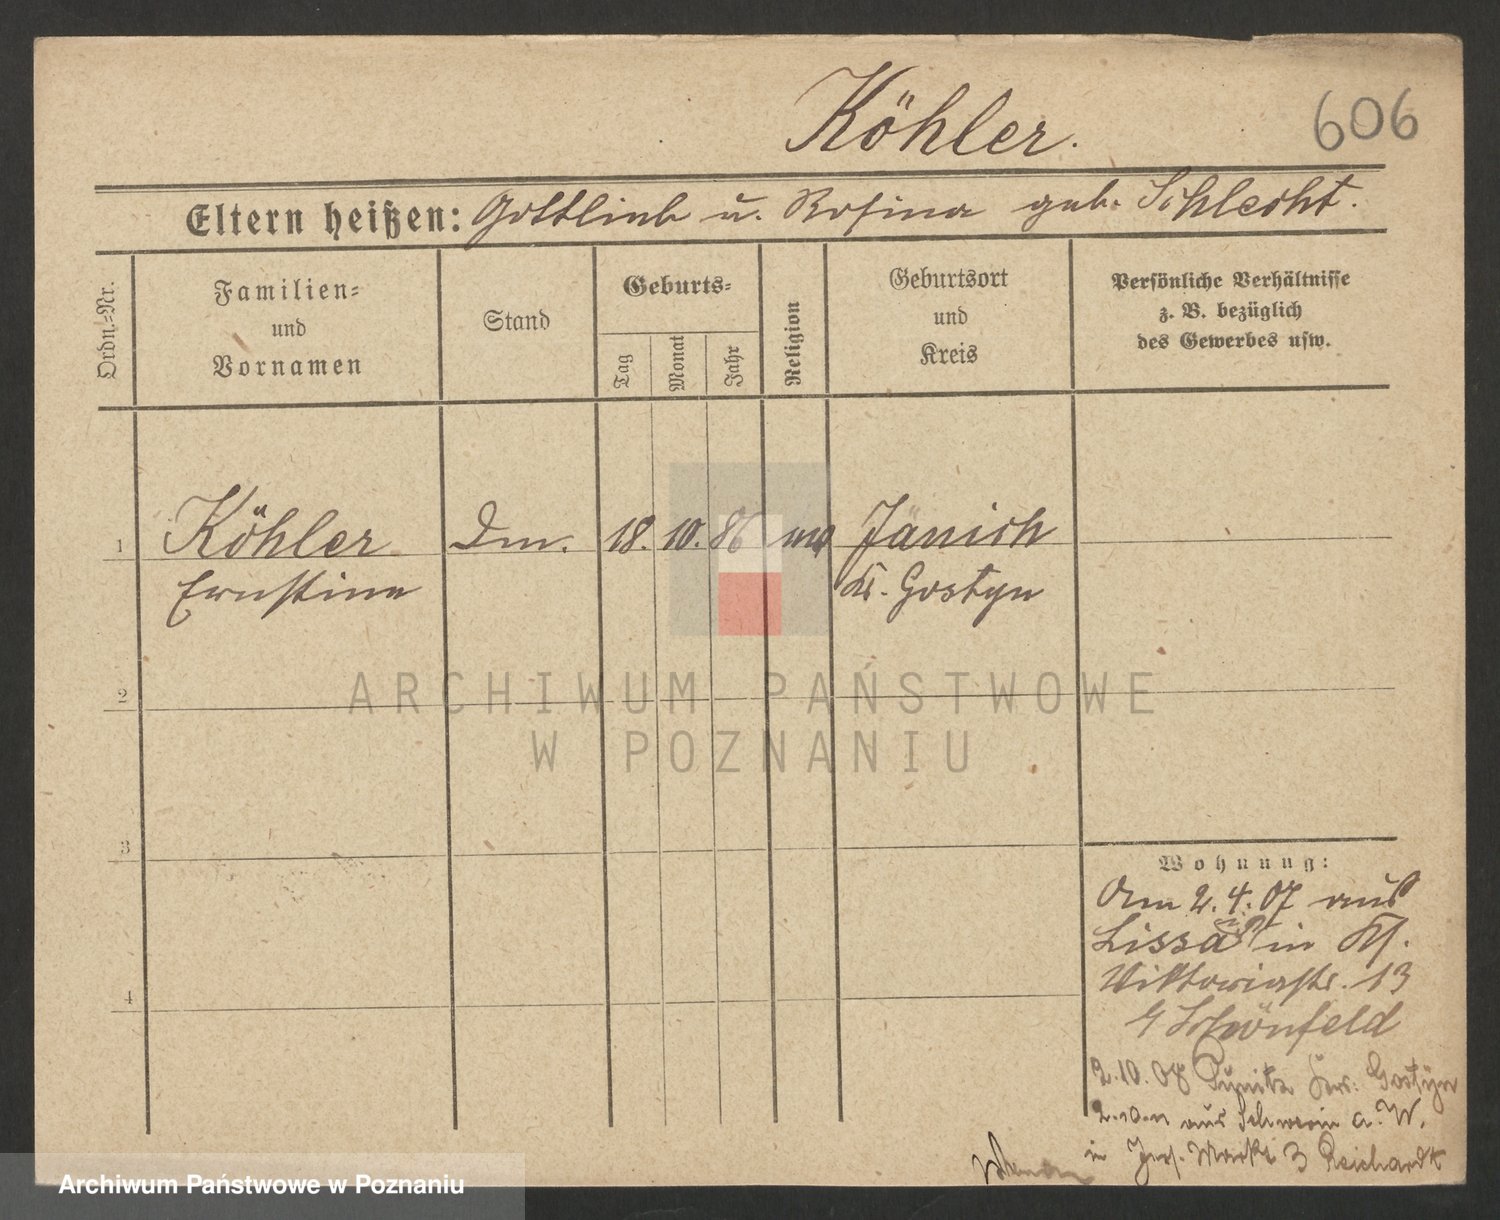 Köhler.
606
Eltern heißen: Gottlieb u. Rosina geb. Schlecht.
Ordn.=Nr.
Familien=
und
Vornamen
Stand
Geburts=
Tag
Monat
Jahr
Religion
Geburtsort
und
Kreis
Persönliche Verhältnisse
z. B. bezüglich
des Gewerbes usw.
1
Köhler
Ernstine
18. 10. 86
Jänich
Kr. Gostyn
2
3
4
Wohnung:
Am 2. 4. 07 aus
Lissa in
Viktoriastr. 13
Schönfeld
2.10.08 Punitz Gostyn
aus Schwerin a. W.
in Markt 3 Reichardt
ARCHIWUM PAŃSTWOWE
W POZNANIU
Archiwum Państwowe w Poznaniu